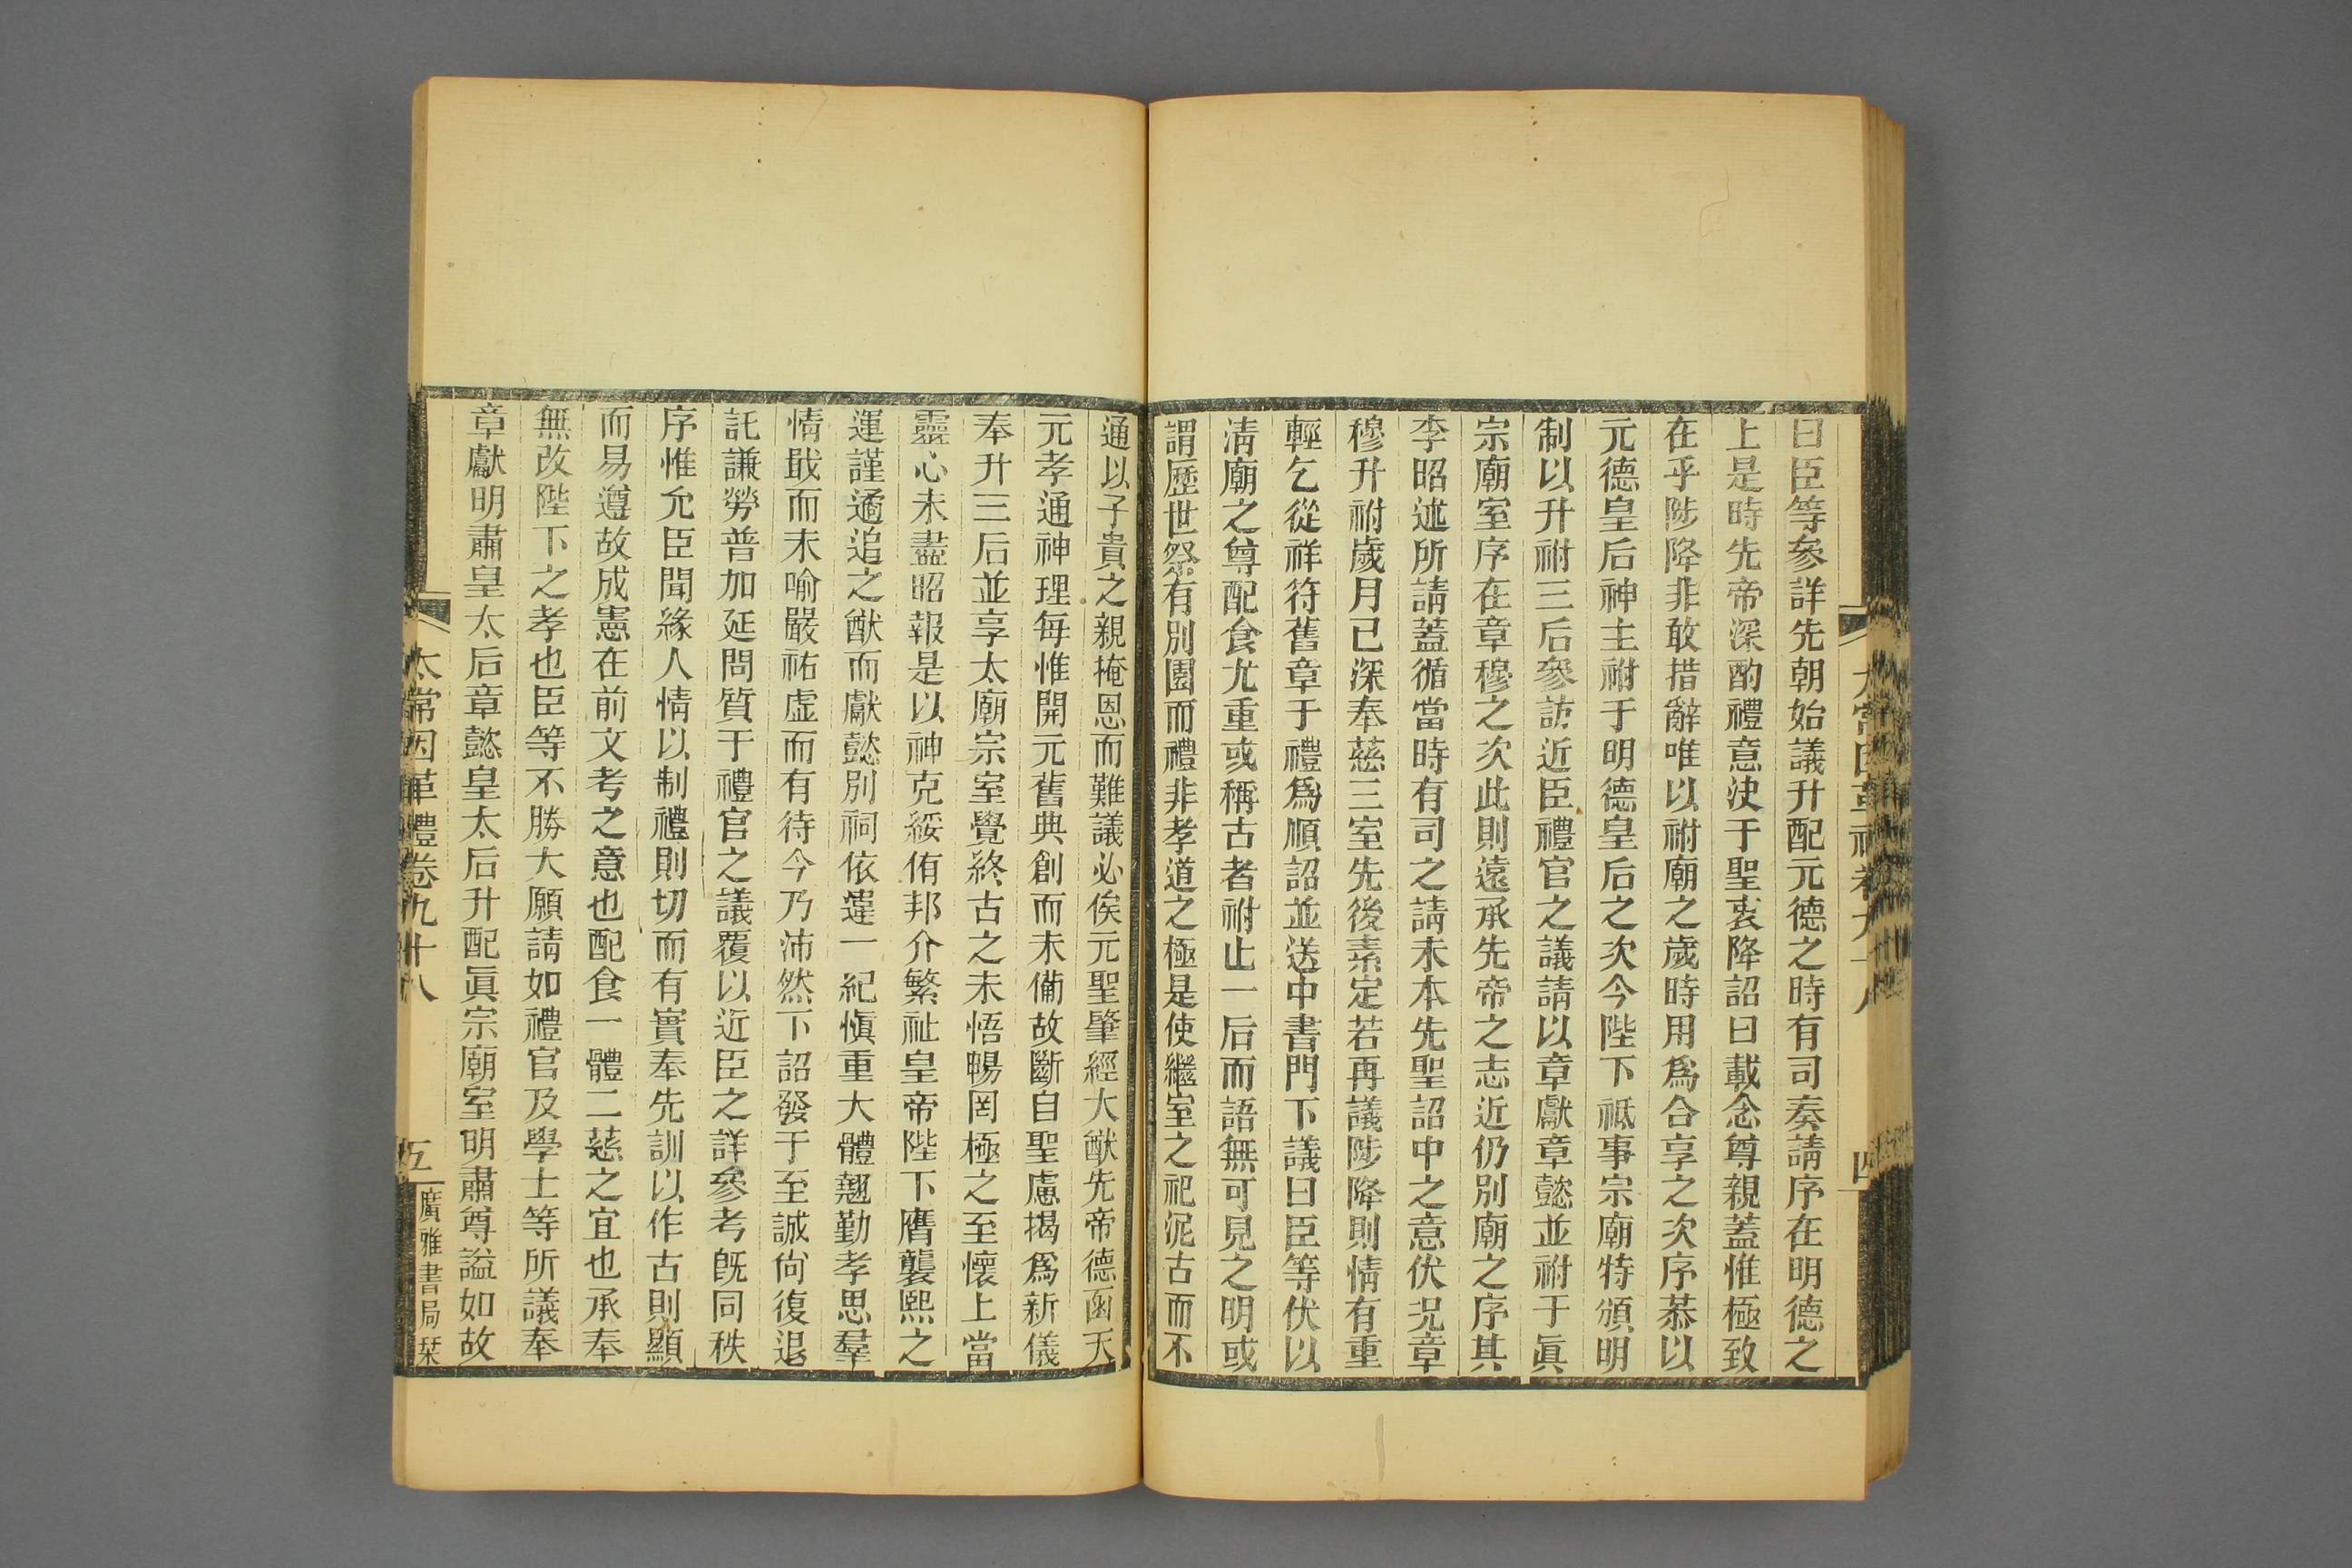 太常因革禮卷九十八
四
曰臣等參詳先朝始議升配元德之時有司奏請序在明德之
上是時先帝深酌禮意決于聖衷降詔曰載念尊親蓋惟極致
在乎陟降非敢措辭唯以祔廟之歲時用爲合享之次序恭以
元德皇后神主祔于明德皇后之次今陛下祗事宗廟特頒明
制以升祔三后參訪近臣禮官之議請以章獻章懿並祔于眞
宗廟室序在章穆之次此則遠承先帝之志近仍別廟之序其
李昭述所請蓋循當時有司之請未本先聖詔中之意伏況章
穆升祔歲月已深奉慈三室先後素定若再議陟降則情有重
輕乞從祥符舊章于禮爲順詔並送中書門下議曰臣等伏以
淸廟之尊配食尤重或稱古者祔止一后而語無可見之明或
謂歷世祭有別園而禮非孝道之極是使繼室之祀泥古而不
通以子貴之親掩恩而難議必俟元聖肇經大猷先帝德函天
元孝通神理每惟開元舊典創而未備故斷自聖慮揭爲新儀
奉升三后並享太廟宗室覺終古之未悟暢罔極之至懷上當
靈心未盡昭報是以神克綏侑邦介繁祉皇帝陛下膺襲熙之
運謹遹追之猷而獻懿別祠依違一紀愼重大體翹勤孝思羣
情戢而未喻嚴祐虛而有待今乃沛然下詔發于至誠尙復退
託謙勞普加延問質于禮官之議覆以近臣之詳參考旣同秩
序惟允臣聞緣人情以制禮則切而有實奉先訓以作古則顯
而易遵故成憲在前文考之意也配食一體二慈之宜也承奉
無改陛下之孝也臣等不勝大願請如禮官及學士等所議奉
章獻明肅皇太后章懿皇太后升配眞宗廟室明肅尊謚如故
太常因革禮卷九十八
五
廣雅書局栞